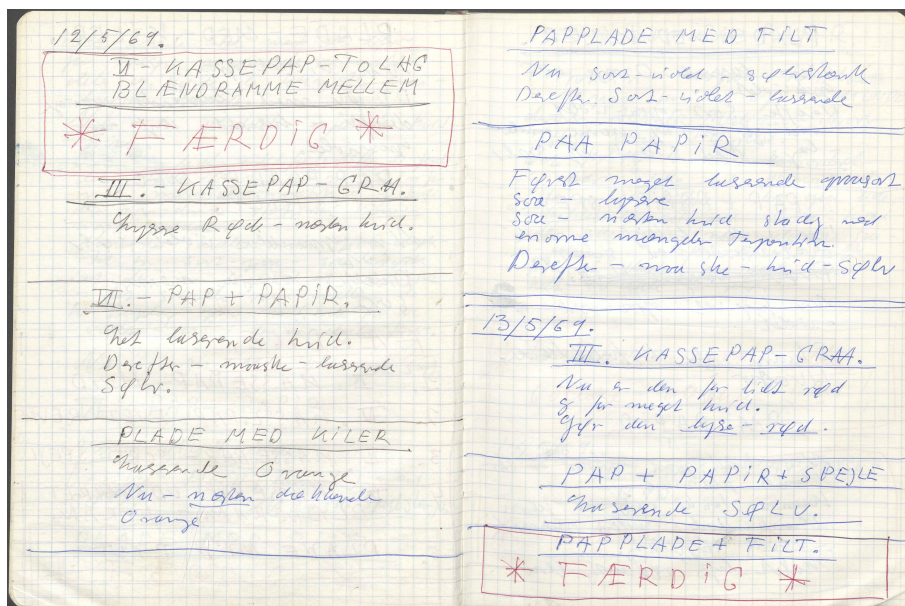 12/5/69.
VI - KASSEPAP - TO LAG
BLÆNDRAMME MELLEM
* FÆRDIG *
III. - KASSEPAP - GRAA.
Lysere Rød - næsten hvid.
VII. - PAP + PAPIR.
Let laserende hvid.
Derefter - maaske - laserende
Sølv.
PLADE MED KILER
Laserende Orange
Nu - næsten dækkende
Orange
PAPPLADE MED FILT
Nu sort-violet - sølvstænk
Derefter. Sort-violet - laserende
PAA PAPIR
Først meget laserende
saa - lysere
saa - næsten hvid stadig med
enorme mængder Terpentin.
Derefter - maaske - hvid - Sølv
13/5/69.
III. KASSEPAP - GRAA.
Nu er den for lidt rød
og for meget hvid.
Gør den lyse - rød.
PAP + PAPIR + SPEJLE
Laserende SØLV.
PAPPLADE + FILT.
* FÆRDIG *